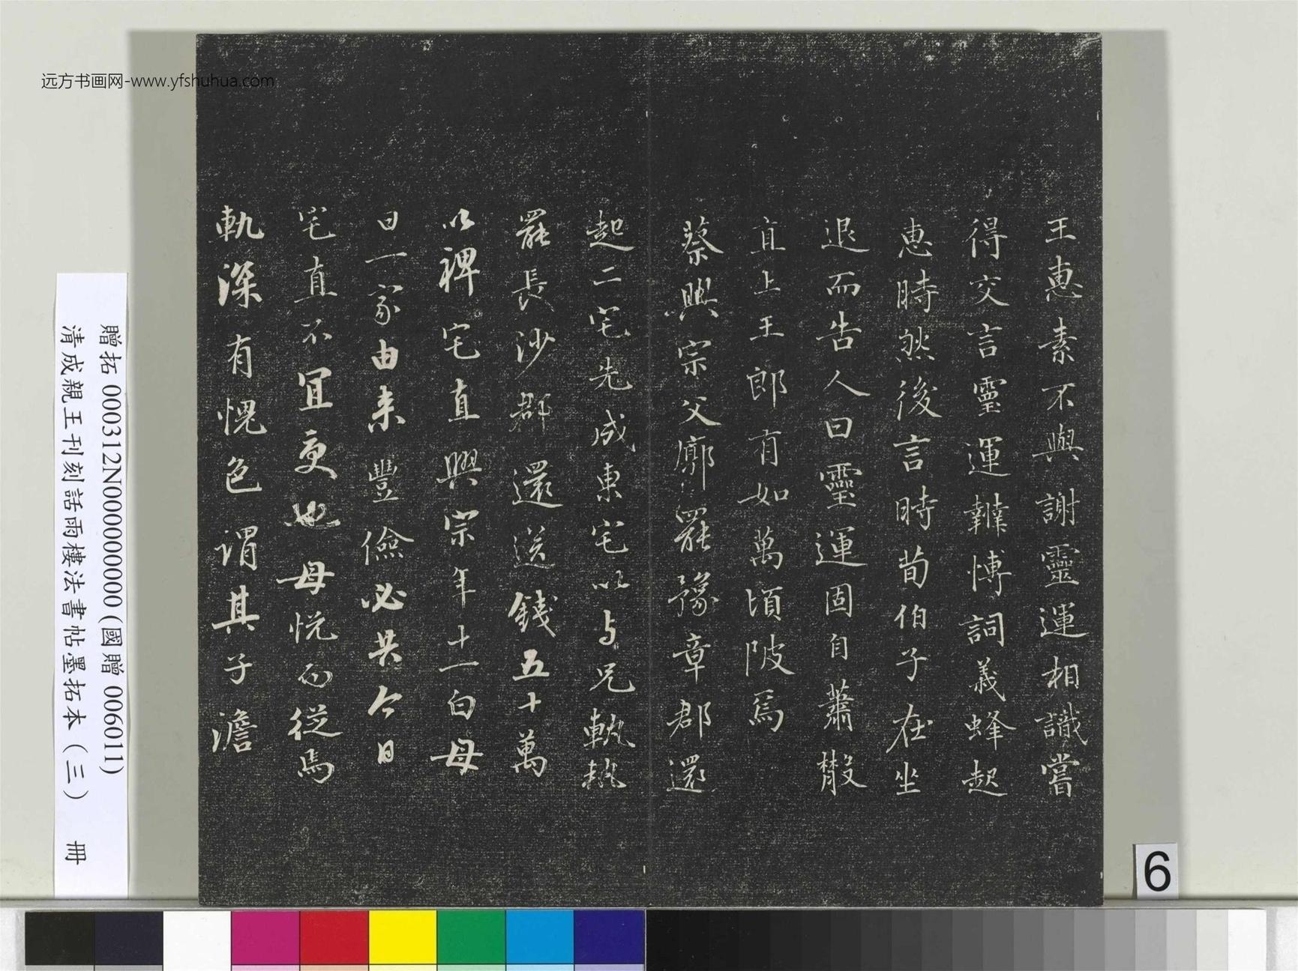 远方书画网-www.yfshuhua.com
王惠素不與謝靈運相識嘗
得交言靈運辯博詞義蜂起
惠時然後言時荀伯子在坐
退而告人曰靈運固自蕭散
直上王郎有如萬頃陂焉
蔡興宗父廓罷豫章郡還
起二宅先成東宅以与兄軌軌
罷長沙郡還送錢五十萬
以裨宅直興宗年十一白母
曰一家由来豐儉必共今日
宅直不宜更也母悦而從焉
軌深有愧色謂其子澹
贈拓 000312N000000000 (國贈 006011)
清成親王刊刻話雨樓法書帖墨拓本（三） 冊
6